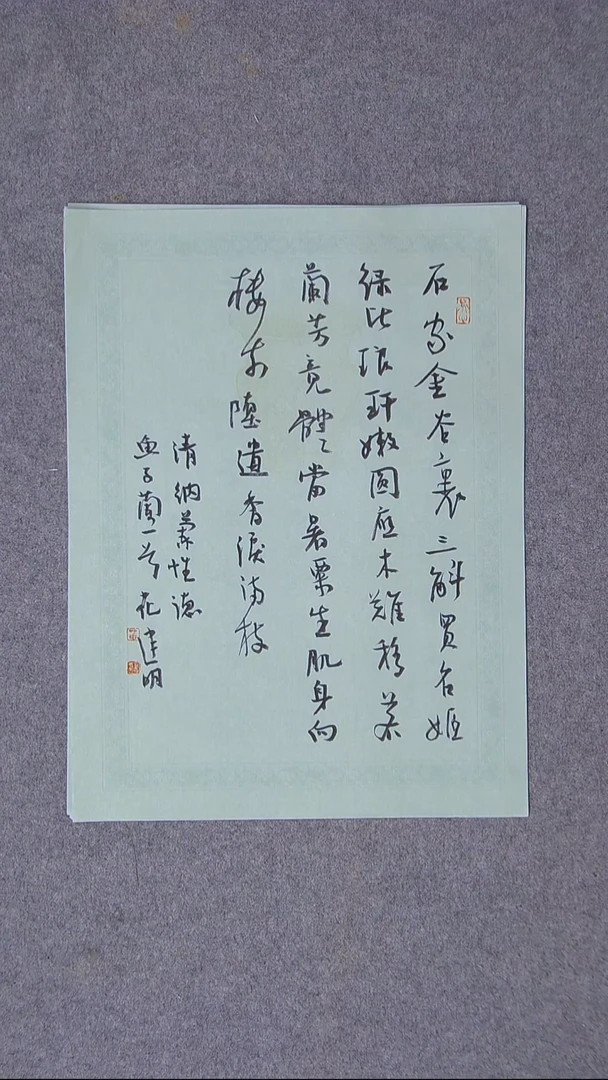 石家金谷裏三斛買名姬
綠比琅玕嫩圓應木難移若
蘭芳竟體當暑粟生肌身向
樓前墮遺香淚滿枝
清納蘭性德
魚子蘭一首花建明